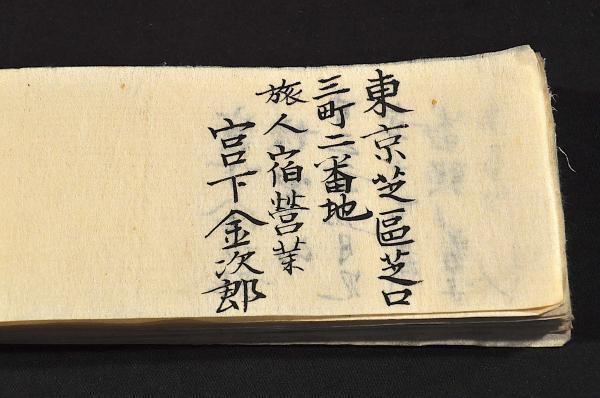 東京芝區芝口
三町二番地
旅人宿營業
宮下金次郎